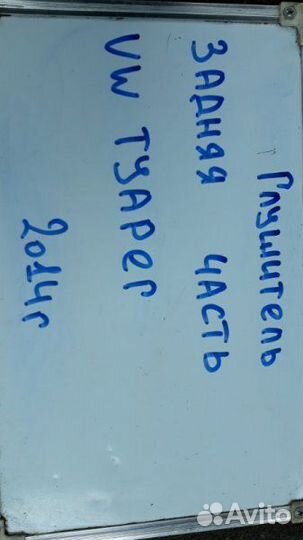 Глушитель
ЗАДНЯЯ ЧАСТЬ
VW ТУАРЕГ
2014г
Avito